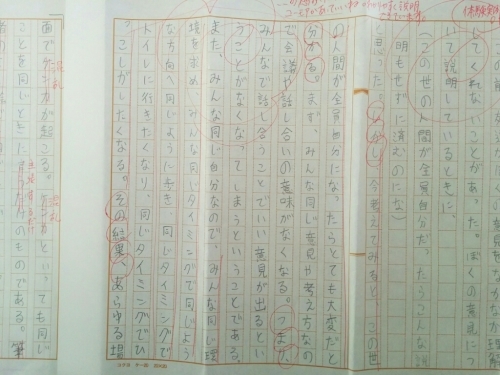 いてくれないことがあった。ぼくの意見につ
いて説明しているときに、
(この世の人間が全員自分だったらこんな説
明もせずに済むのにな)
と思った。しかし、今考えてみると、この世
の人間が全員自分になったらとても大変だと
分かる。まず、みんな同じ意見や考え方なの
で会議や話し合いの意味がなくなる。つまり、
みんなで話し合うことでいい意見が出るとい
うことがなくなってしまうということである。
また、みんな同じ自分なので、みんな同じ理
境を求め、みんな同じタイミングで同じよう
な方向へ同じように歩き、同じタイミングで
トイレに行きたくなり、同じタイミングでひ
っこしがしたくなる。その結果、あらゆる場
面でケンカが起こる。ケンカといっても同じ
ことを同じときに だけのものである。筆